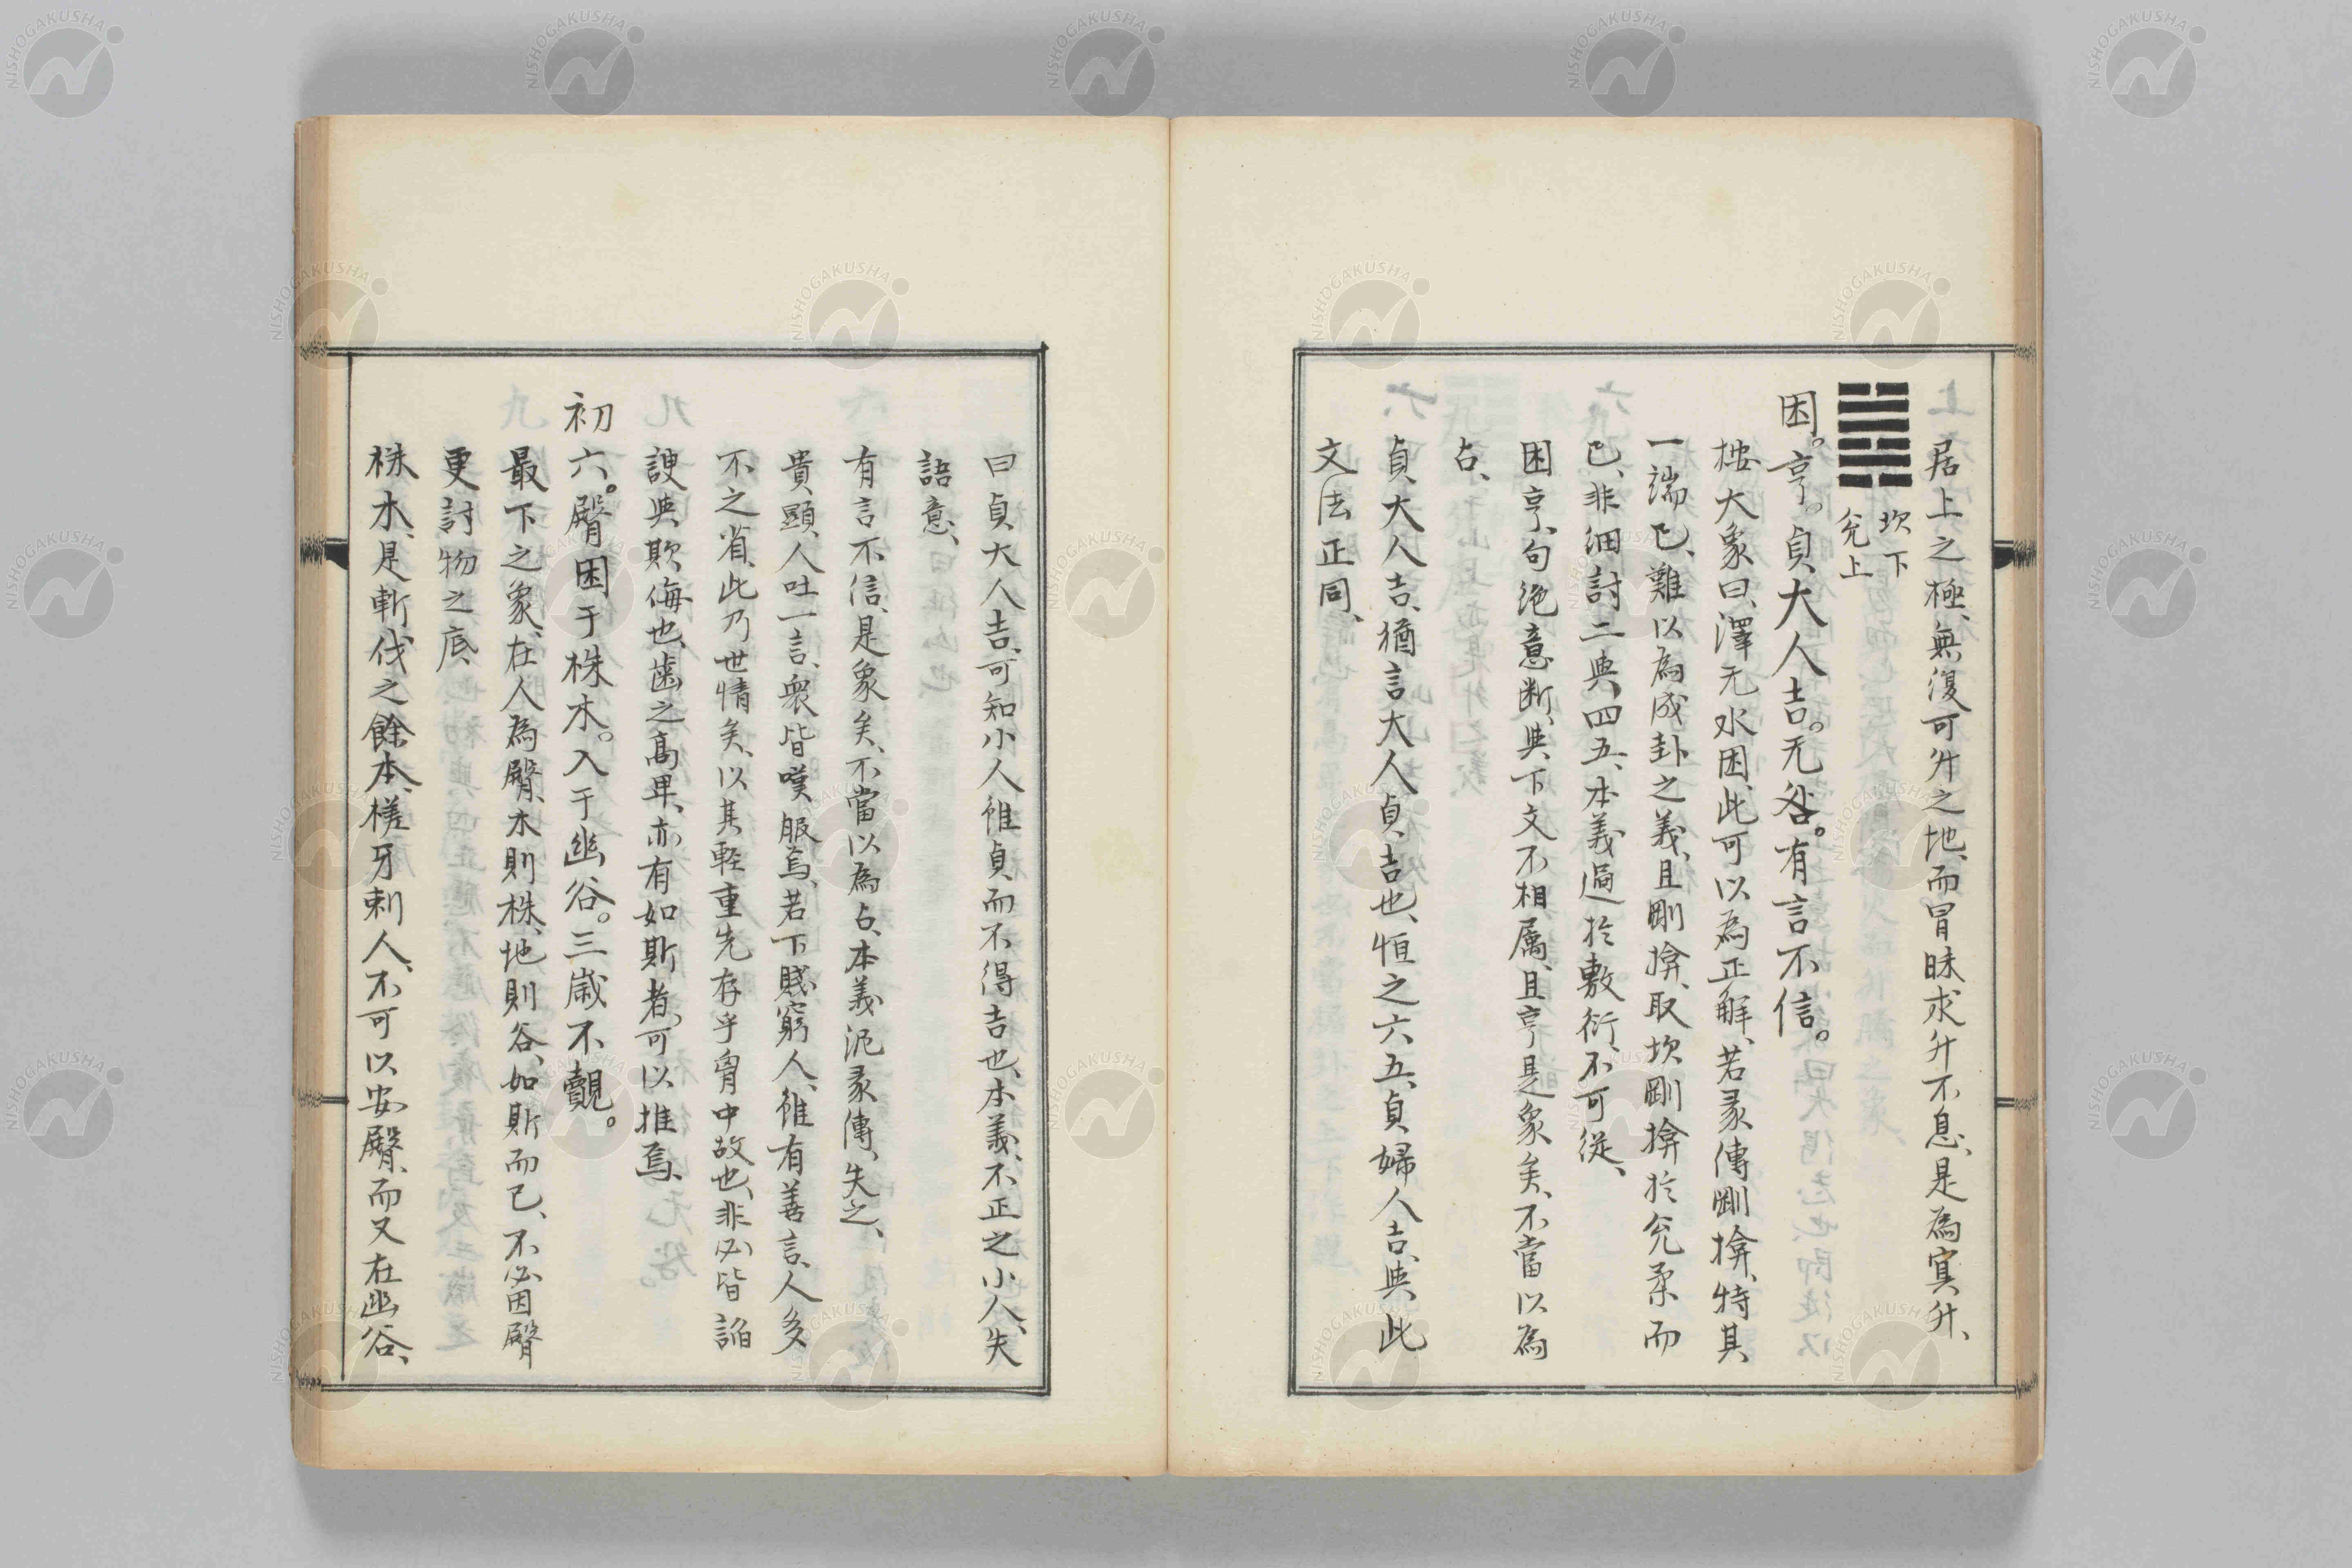 居上之極、無復可升之地、而冒昧求升不息、是為冥升、
坎下
兌上
困。亨。貞大人吉。无咎。有言不信。
按大象曰、澤无水困、此可以為正解、若彖傳剛揜、特其
一端已、難以為成卦之義、且剛揜、取坎剛揜於兌柔而
已、非細討二與四五、本義過於敷衍、不可從、
困亨、句絶意断、與下文不相属、且亨是象矣、不當以為
占、
貞、大人吉、猶言大人貞、吉也、恒之六五、貞婦人吉、與此
文法正同、
曰貞大人吉、可知小人雖貞而不得吉也、本義、不正之小人、失
語意、
有言不信、是象矣、不當以為占、本義泥彖傳、失之、
貴顯、人吐一言、衆皆嘆服焉、若下賤窮人、雖有善言、人多
不之省、此乃世情矣、以其輕重先存乎胷中故也、非必皆諂
諛與欺侮也、齒之高卑、亦有如斯者、可以推焉、
初六。臀困于株木。入于幽谷。三歳不覿。
最下之象、在人為臀、木則株、地則谷、如斯而已、不必因臀
更討物之底、
株木、是斬伐之餘本、槎牙刺人、不可以安臀、而又在幽谷、
NISHOGAKUSHA